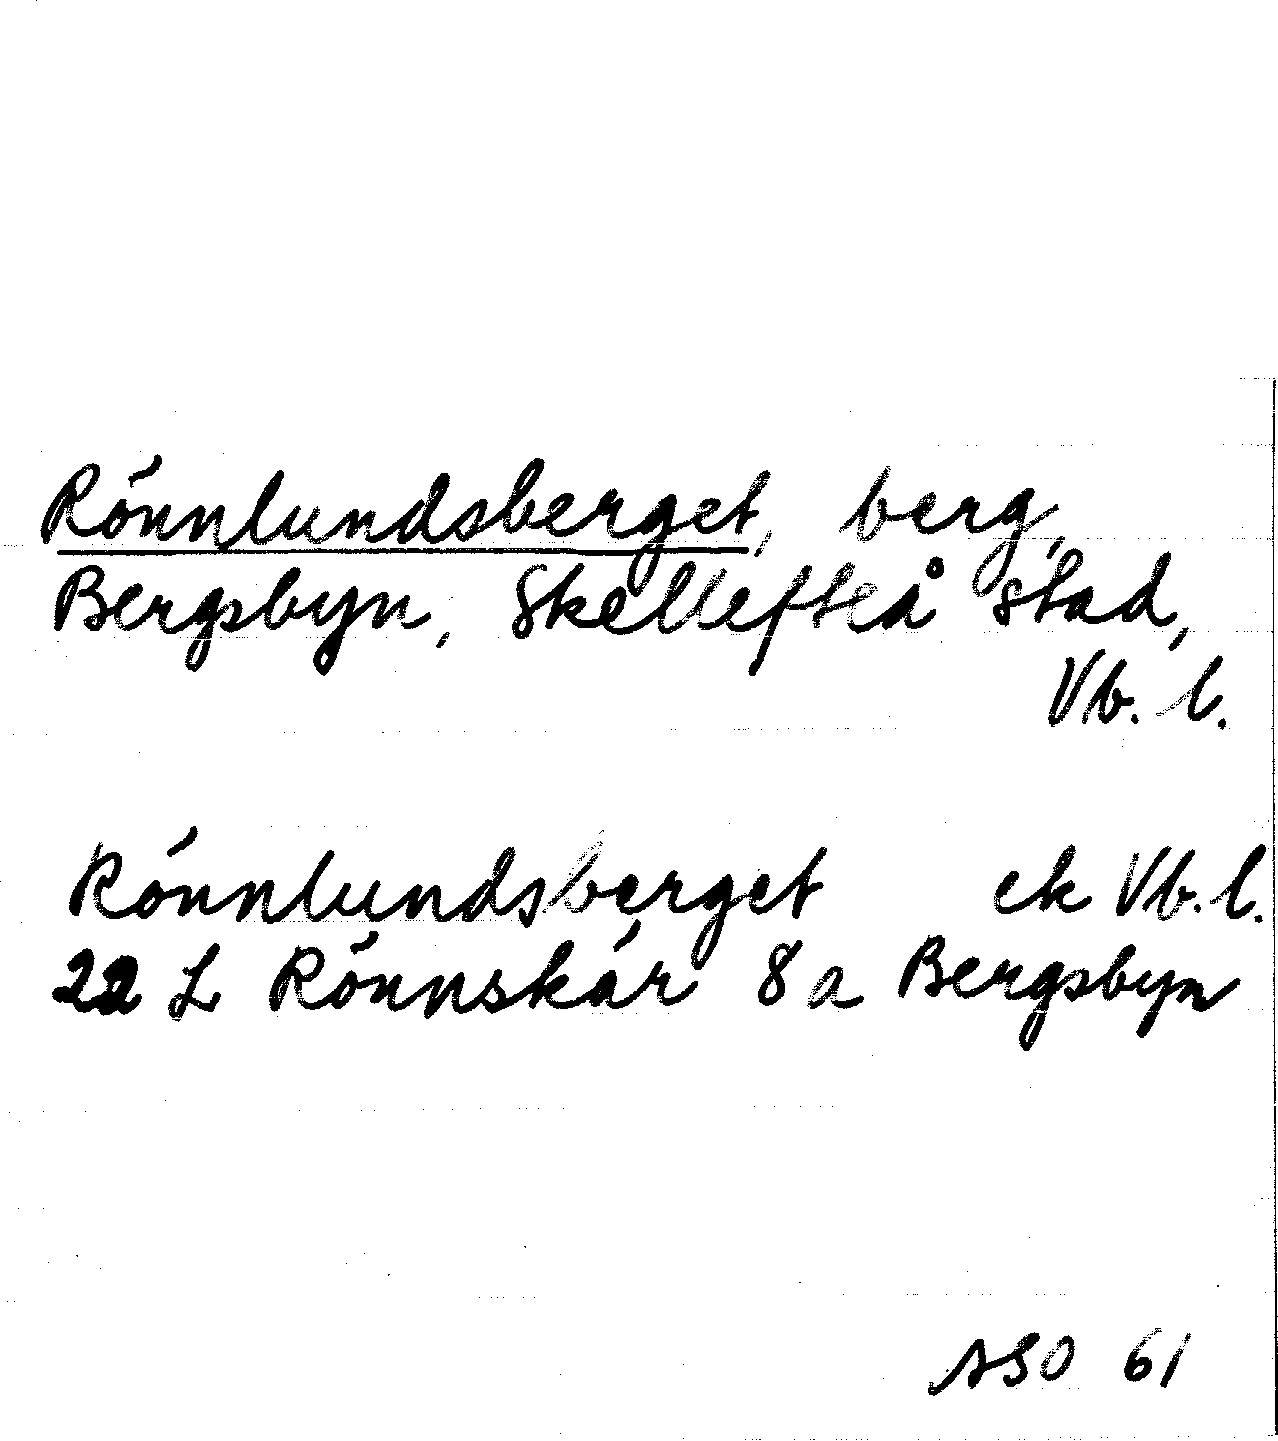 Rönnlundsberget, berg,
Bergsbyn, Skellefteå stad,
Vb. l.
Rönnlundsberget ek Vb. l.
22 L Rönnskär 8 a Bergsbyn
ASO 61